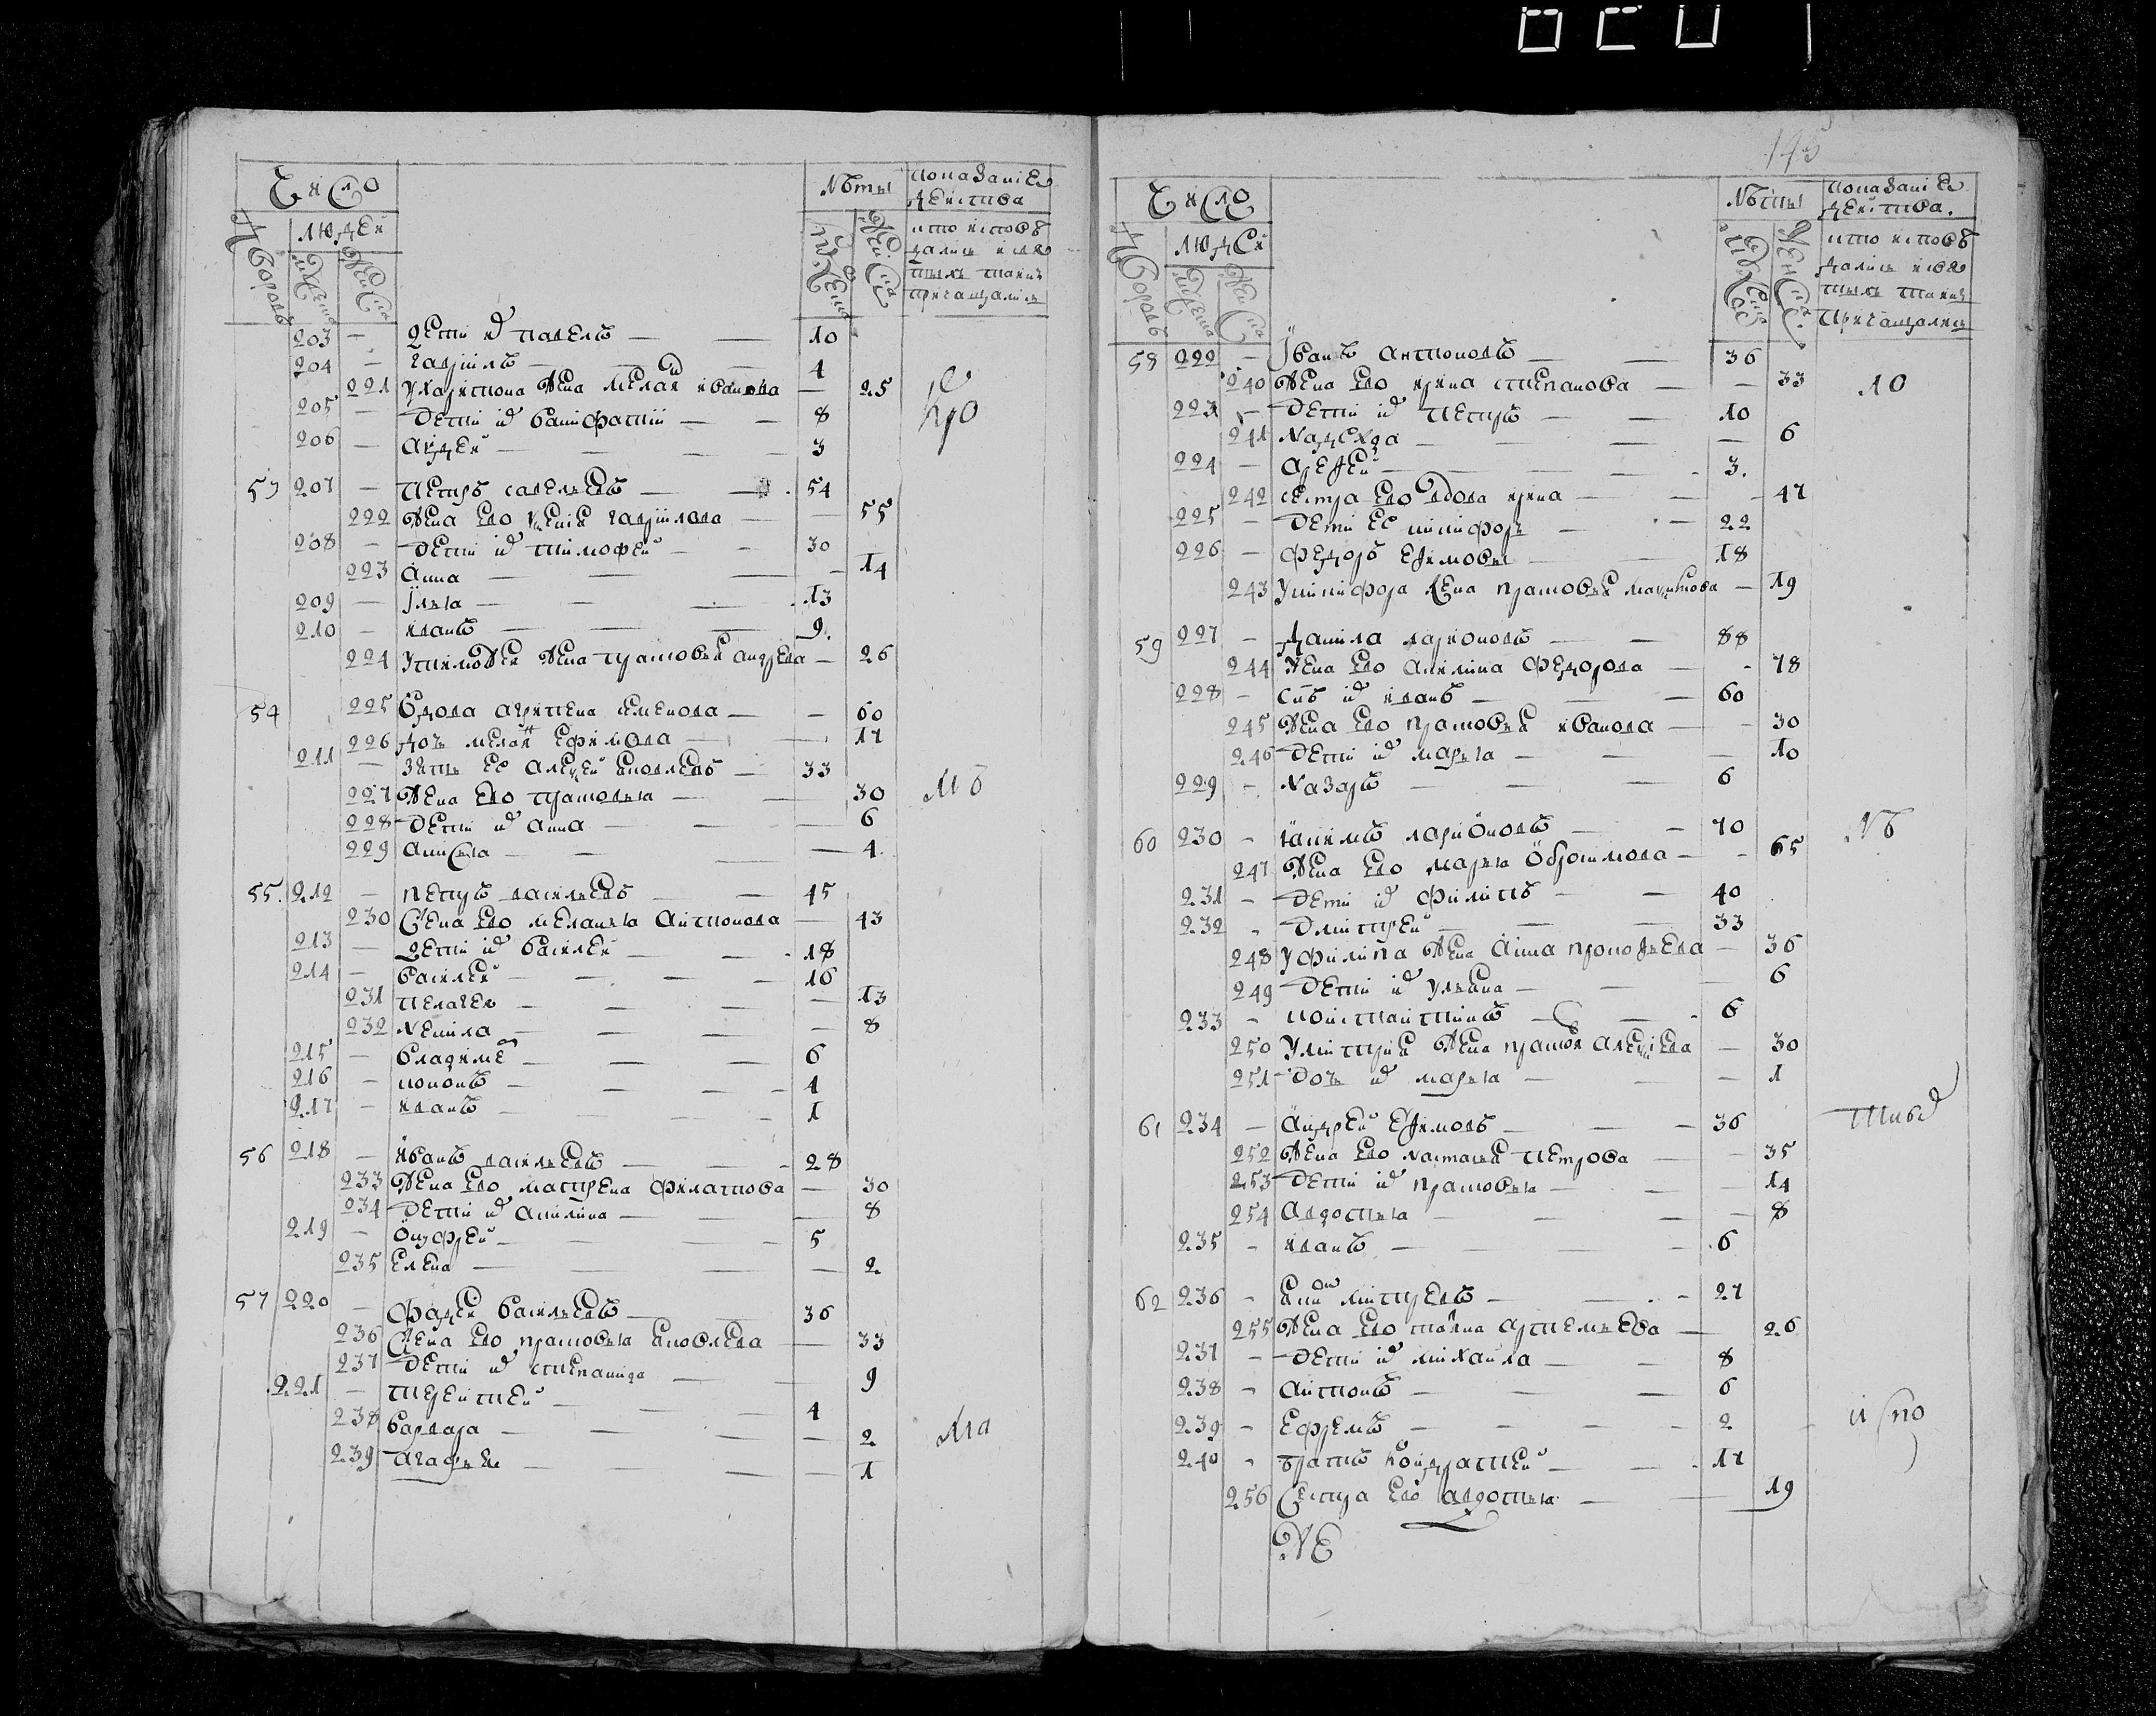 Число
Дворовъ
людей
мужеска
женска
лѣты
мужеска
женска
показаніе
действа
кто исповѣ
дались и свя
тыхъ таинъ
причащались
203 — дети ихъ павелъ — 10
204 — гаврилъ — 4
221 у харитона жена меланя иванова — 25
205 — дети ихъ ванифатій — 8
206 — андрей — 3
53 207 — петръ савельевъ — 54
222 жена ево ксенія гаврилова — 55
208 — дети ихъ тимофей — 30
223 анна — 14
209 — илья — 13
210 — иванъ — 9
224 у тимофея жена прасковья андреева — 26
54 225 вдова агрипена семенова — 60
226 дочь меланя ефимова — 17
211 — зять ее алексей яковлевъ — 33
227 жена ево прасковья — 30
228 дети ихъ анна — 6
229 анисья — 4
55 212 — петръ васильевъ — 45
230 жена ево меланья антонова — 43
213 — дети ихъ василей — 18
214 — василей — 16
231 пелагея — 13
232 ненила — 8
215 — владимеръ — 6
216 — кононъ — 4
217 — иванъ — 1
56 218 — иванъ васильевъ — 28
233 жена ево матрена филатова — 30
234 дети ихъ акилина — 8
219 — онуфрей — 5
235 елена — 2
57 220 — фадей васильевъ — 36
236 жена ево прасковья яковлева — 33
237 дети ихъ степанида — 9
221 — терентей — 4
238 варвара — 2
239 агафья — 1
145
Число
Дворовъ
людей
мужеска
женска
лѣты
мужеска
женска
показаніе
действа.
кто исповѣ
дались и свя
тыхъ таинъ
причащались
58 222 — иванъ антоновъ — 36
240 жена ево ирина степанова — 33
223 — дети ихъ петръ — 10
241 надежда — 6
224 — арефей — 3
242 сестра ево вдова ирина — 47
225 — дети ее никифоръ — 22
226 — федоръ ефимовы — 18
243 у никифора жена прасковья максимова — 19
59 227 — данила ларионовъ — 88
244 жена ево акилина федорова — 78
228 — снъ ихъ иванъ — 60
245 жена ево прасковья иванова — 30
246 дети ихъ марья — 10
229 — назаръ — 6
60 230 — якимъ ларионовъ — 70
247 жена ево марья ѡбросимова — 65
231 — дети ихъ филипъ — 40
232 — дмитрей — 33
248 у филипа жена анна прокофьева — 36
249 дети ихъ ульяна — 6
233 — констайтинъ — 6
250 у митрия жена прасковя алексіева — 30
251 дочь ихъ марья — 1
61 234 — андрей ефимовъ — 36
252 жена ево настасья петрова — 35
253 дети ихъ прасковья — 14
254 авдотья — 8
235 — иванъ — 6
62 236 — яковъ митревъ — 27
255 жена ево татияна артемьева — 26
237 — дети ихъ михаила — 8
238 — антонъ — 6
239 — ефремъ — 2
240 — братъ кондратей — 17
256 сестра ево авдотья — 19